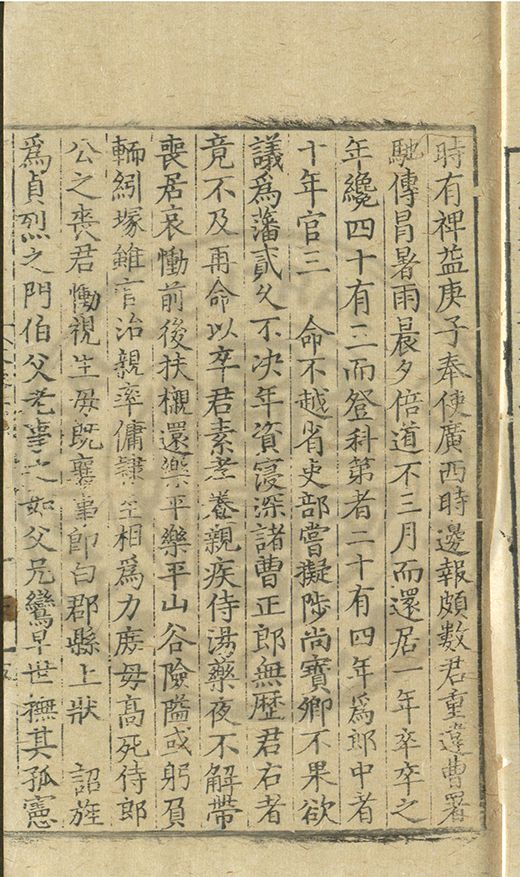 時有裨益庚子奉使廣西時邊報頗數君重違曹署
馳傳冒暑雨晨夕倍道不三月而還居一年卒卒之
年纔四十有二而登科第者二十有四年爲郎中者
十年官三　命不越省吏部嘗擬陟尚寶卿不果欲
議爲藩貳久不决年資寖深諸曹正郎無歷君右者
竟不及再命以卒君素孝養親疾侍湯藥夜不解帶
喪居哀慟前後扶櫬還樂平樂平山谷險隘或躬負
輀紖塚雖官治親率傭隸至相爲力庶母高死侍郎
公之喪君慟視生母既襄事即白郡縣上狀　詔旌
爲貞烈之門伯父老事之如父兄鸞早世撫其孤憲